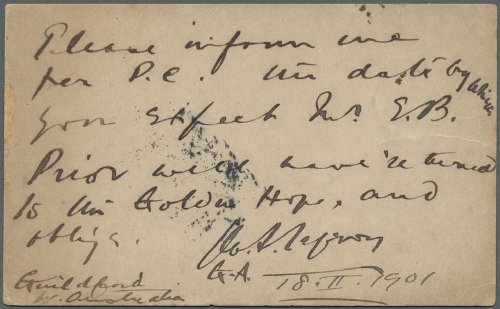 Please inform me
per P.C. the date by which
you expect Mr. E.B.
Prior will have returned
to the Golden Hope, and
oblige.
Guildford
W. Australia
18.II.1901